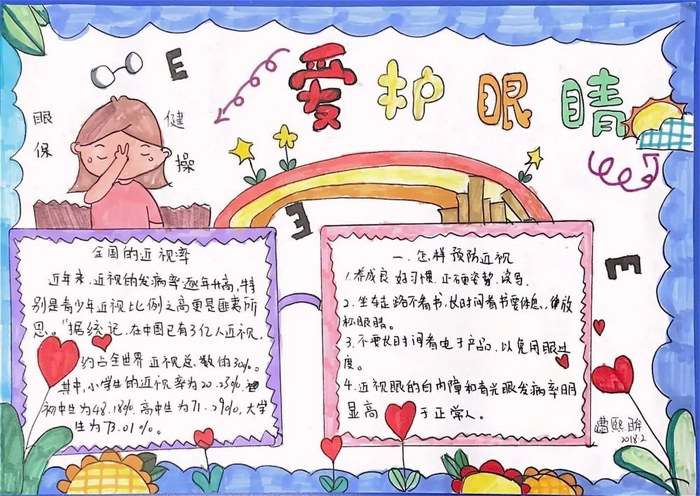 E
爱护眼睛
眼保健操
E
E
全国的近视率
近年来,近视的发病率逐年升高,特
别是青少年近视比例之高更是匪夷所
思。"据统计,在中国已有3亿人近视,
约占全世界近视总数的30%。
其中,小学生的近视率为20.23%
初中生为48.18%,高中生为71.29%,大学
生为73.01%。
一、怎样预防近视
1.养成良好习惯,正确姿势,读写。
2.坐车走路不看书,长时间看书要休息,做放
松眼睛。
3.不要长时间看电子产品,以免用眼过
度。
4.近视眼的白内障和青光眼发病率明
显高于正常人。
2018.2